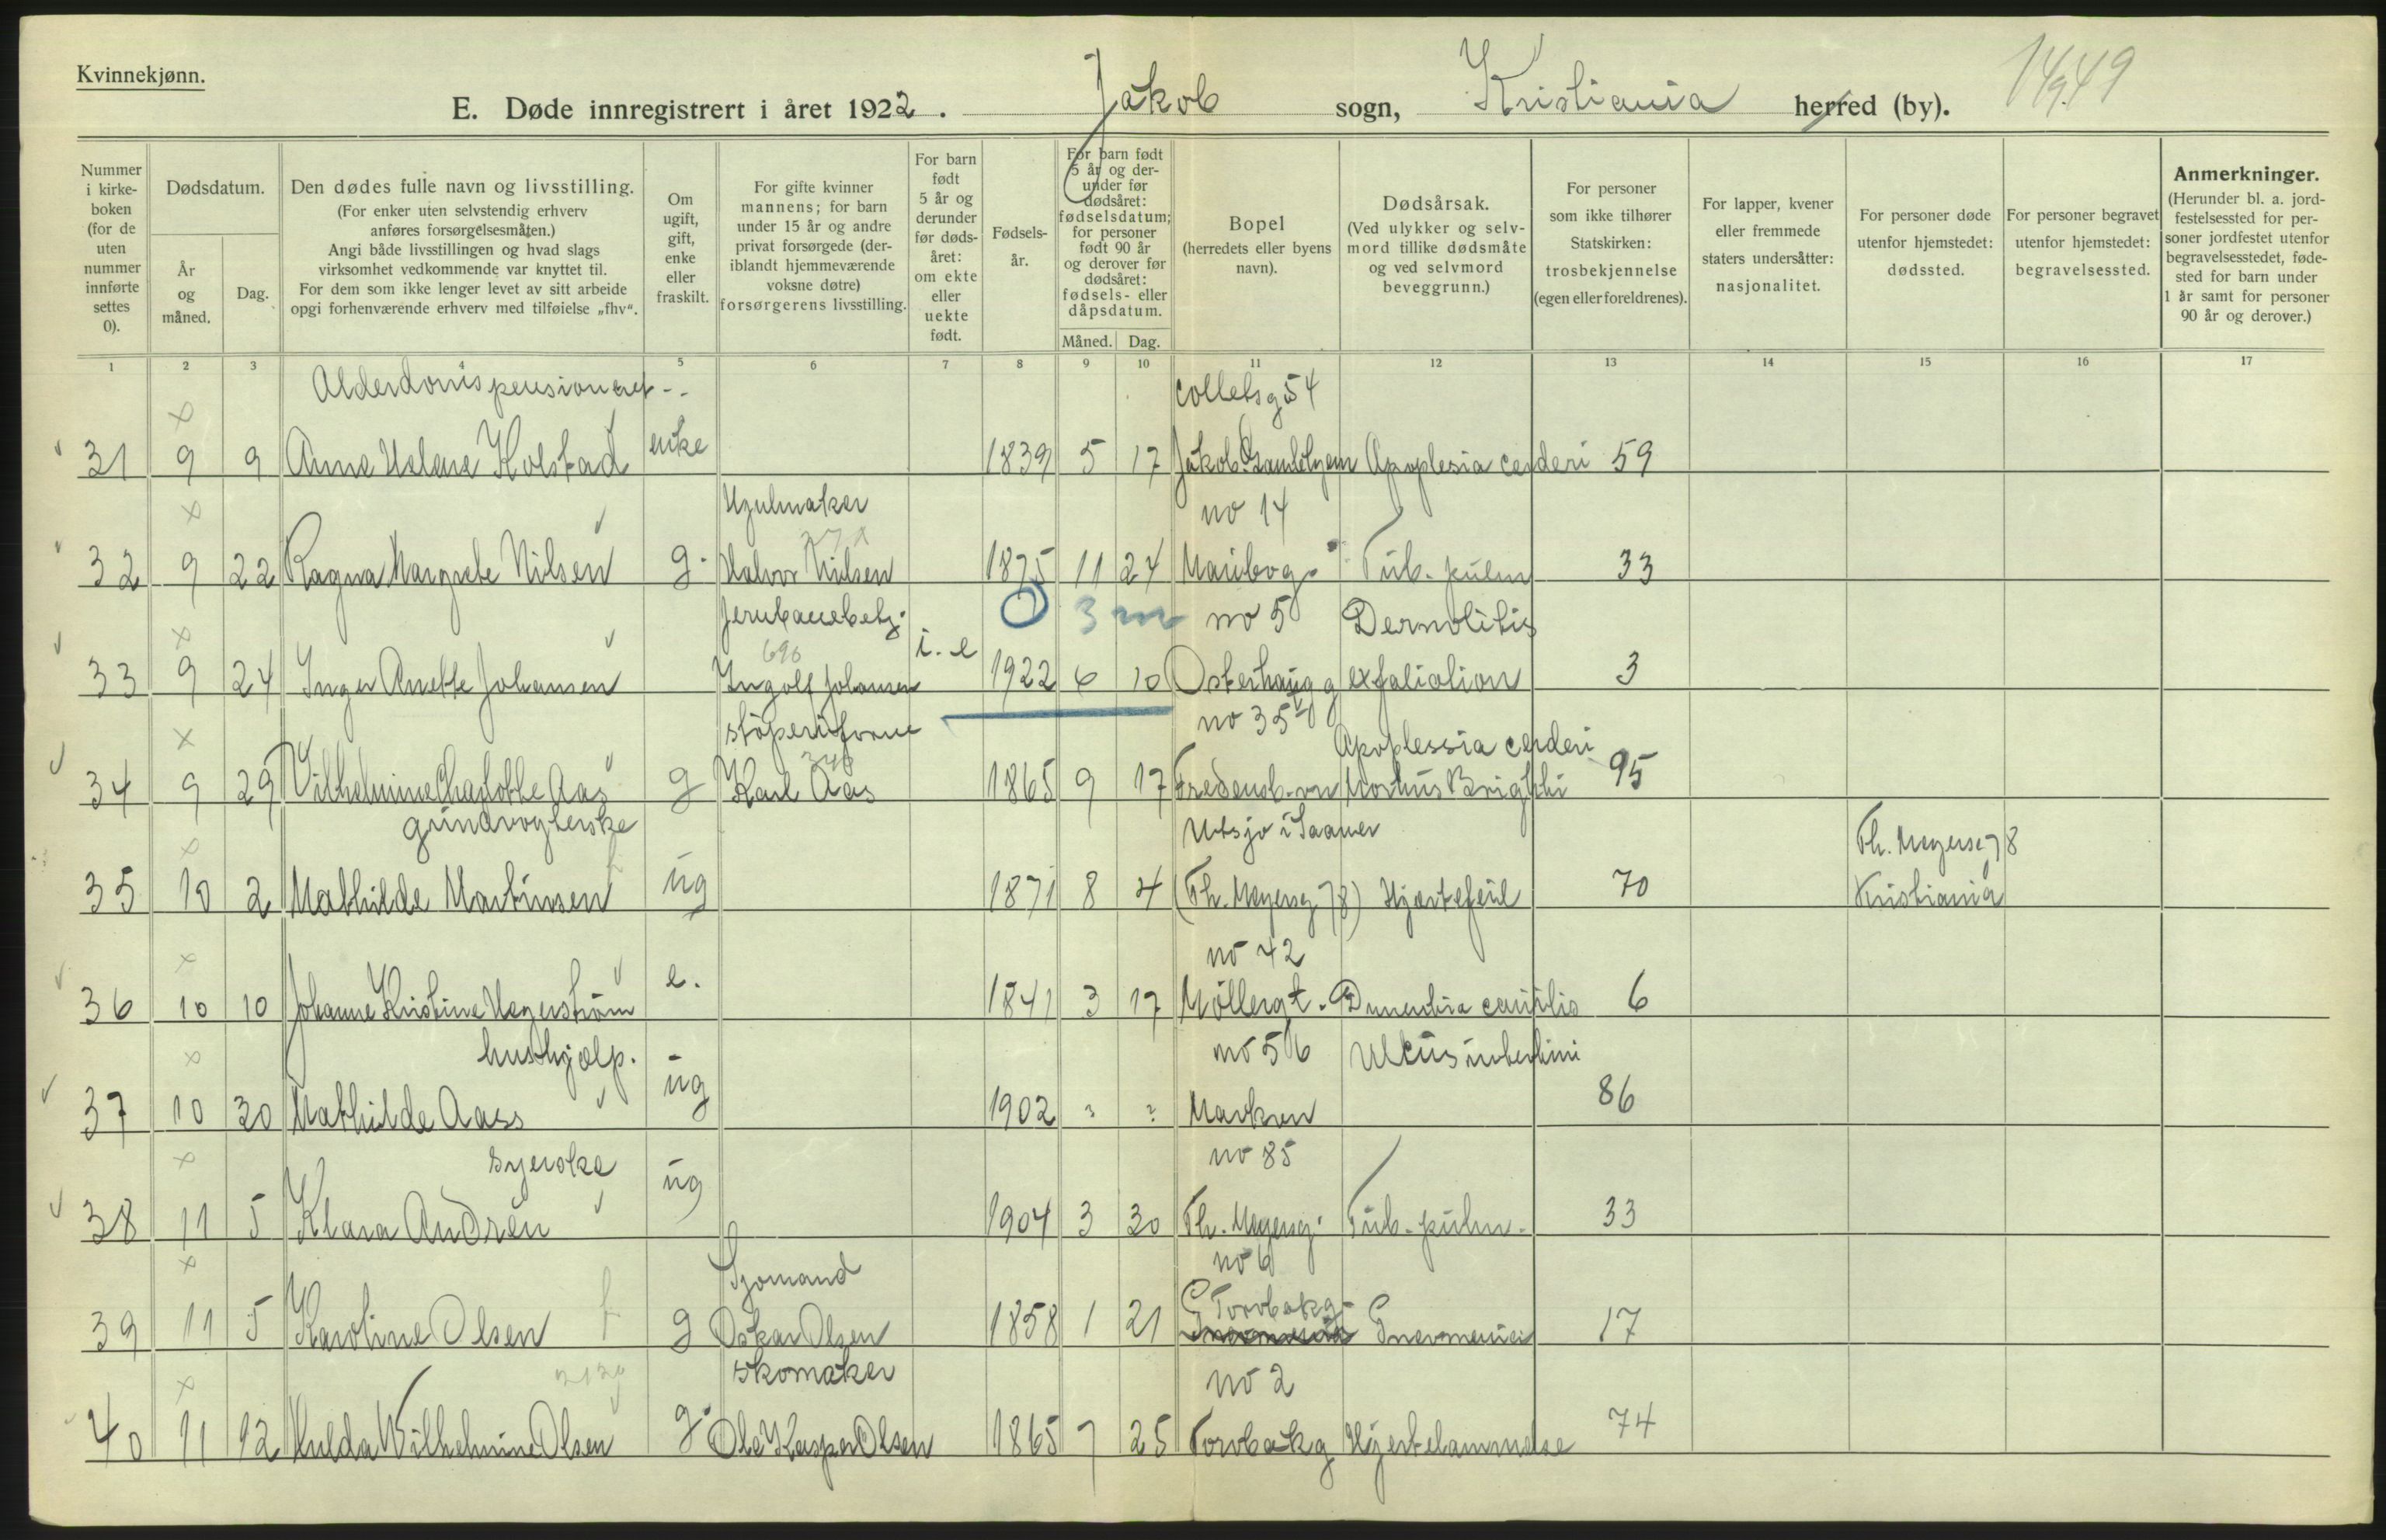 Kvinnekjønn.
E. Døde innregistrert i året 1922. Jakob sogn, Kristiania herred (by).
Nummer i kirkeboken (for de uten nummer innførte settes 0).
Dødsdatum.
År og måned.
Dag.
Den dødes fulle navn og livsstilling.
(For enker uten selvstendig erhverv anføres forsørgelsesmåten.)
Angi både livsstillingen og hvad slags virksomhet vedkommende var knyttet til.
For dem som ikke lenger levet av sitt arbeide opgi forhenværende erhverv med tilføielse „fhv“.
Om ugift, gift, enke eller fraskilt.
For gifte kvinner mannens; for barn under 15 år og andre privat forsørgede (deriblandt hjemmeværende voksne døtre) forsørgerens livsstilling.
For barn født 5 år og derunder før dødsåret: om ekte eller uekte født.
Fødselsår.
For barn født 5 år og derunder før dødsåret: fødselsdatum; for personer født 90 år og derover før dødsåret: fødsels- eller dåpsdatum.
Måned. Dag.
Bopel (herredets eller byens navn).
Dødsårsak. (Ved ulykker og selvmord tillike dødsmåte og ved selvmord beveggrunn.)
For personer som ikke tilhører Statskirken: trosbekjennelse (egen eller foreldrenes).
For lapper, kvener eller fremmede staters undersåtter: nasjonalitet.
For personer døde utenfor hjemstedet: dødssted.
For personer begravet utenfor hjemstedet: begravelsessted.
Anmerkninger. (Herunder bl. a. jordfestelsessted for personer jordfestet utenfor begravelsesstedet, fødested for barn under 1 år samt for personer 90 år og derover.)
1 2 3 4 5 6 7 8 9 10 11 12 13 14 15 16 17
Alderdoms Colletsg 54
31 9 9 Anna Helene Kolstad enke 1839 5 17 Jakob Gamlehjem Apoplesia 59
Hjulmaker no 14
32 9 22 Ragna Margrete Nilsen g. Halvor Nilsen 1875 11 24 Maribog. Tub. pulm 33
3 m no 5
33 9 24 Inger Anette Johansen Ingolf Johansen i. e 1922 6 10 Osterhausg 3
no 35
Apoplessia
34 9 29 Vilhelmine Charlotte Aas g Karl Aas 1865 9 17 Fredensb.vn Morbus Brighti 95
35 10 2 Mathilde Martinsen ug 1871 8 4 (Th. Meyersg 78) Hjertefeil 70 Th. Meyersg 78 Kristiania
no 42
36 10 10 Johanne Kristine Hegerstrøm e. 1841 3 17 Møllergt. 6
hushjælp. no 56 Ulcus
37 10 30 Mathilde Aass ug 1902 ? ? Marken 86
Syerske no 85
38 11 5 Klara Andrén ug 1904 3 30 Th. Meyersg. Tub. pulm. 33
Sjømand no 6
39 11 5 Karoline Olsen g Oskar Olsen 1858 1 21 Torvbakg. Pnevmonia 17
Skomaker no 2
40 11 12 Hulda Wilhelmine Olsen g. Ole Kasper Olsen 1865 7 25 Torvbakg Hjertelammelse 74